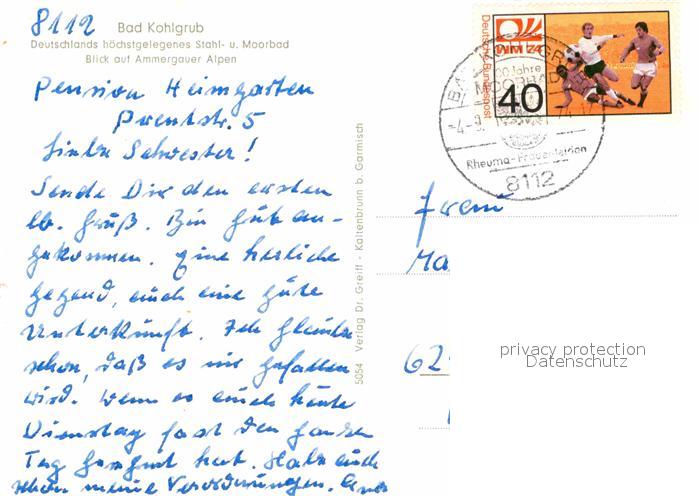 8112 Bad Kohlgrub
Deutschlands höchstgelegenes Stahl- u. Moorbad
Blick auf Ammergauer Alpen
Pension Heimgarten
Prentstr. 5
Liebe Schwester!
Sende Dir den ersten
lb. Gruß. Bin gut an-
gekommen. Eine herliche
Gegend, auch eine gute
Unterkunft. Ich glaube
schon, daß es mir gefallen
wird. Wenn es auch heute
Dienstag fast den ganzen
Tag geregnet hat. Habe auch
schon meine Verordnungen.
5054 Verlag Dr. Greiff - Kaltenbrunn b. Garmisch
WM 74
Deutsche Bundespost
40
Jahre
MOORBAD
Rheuma-Frauenleiden
8112
Frau
Ma
62
privacy protection
Datenschutz